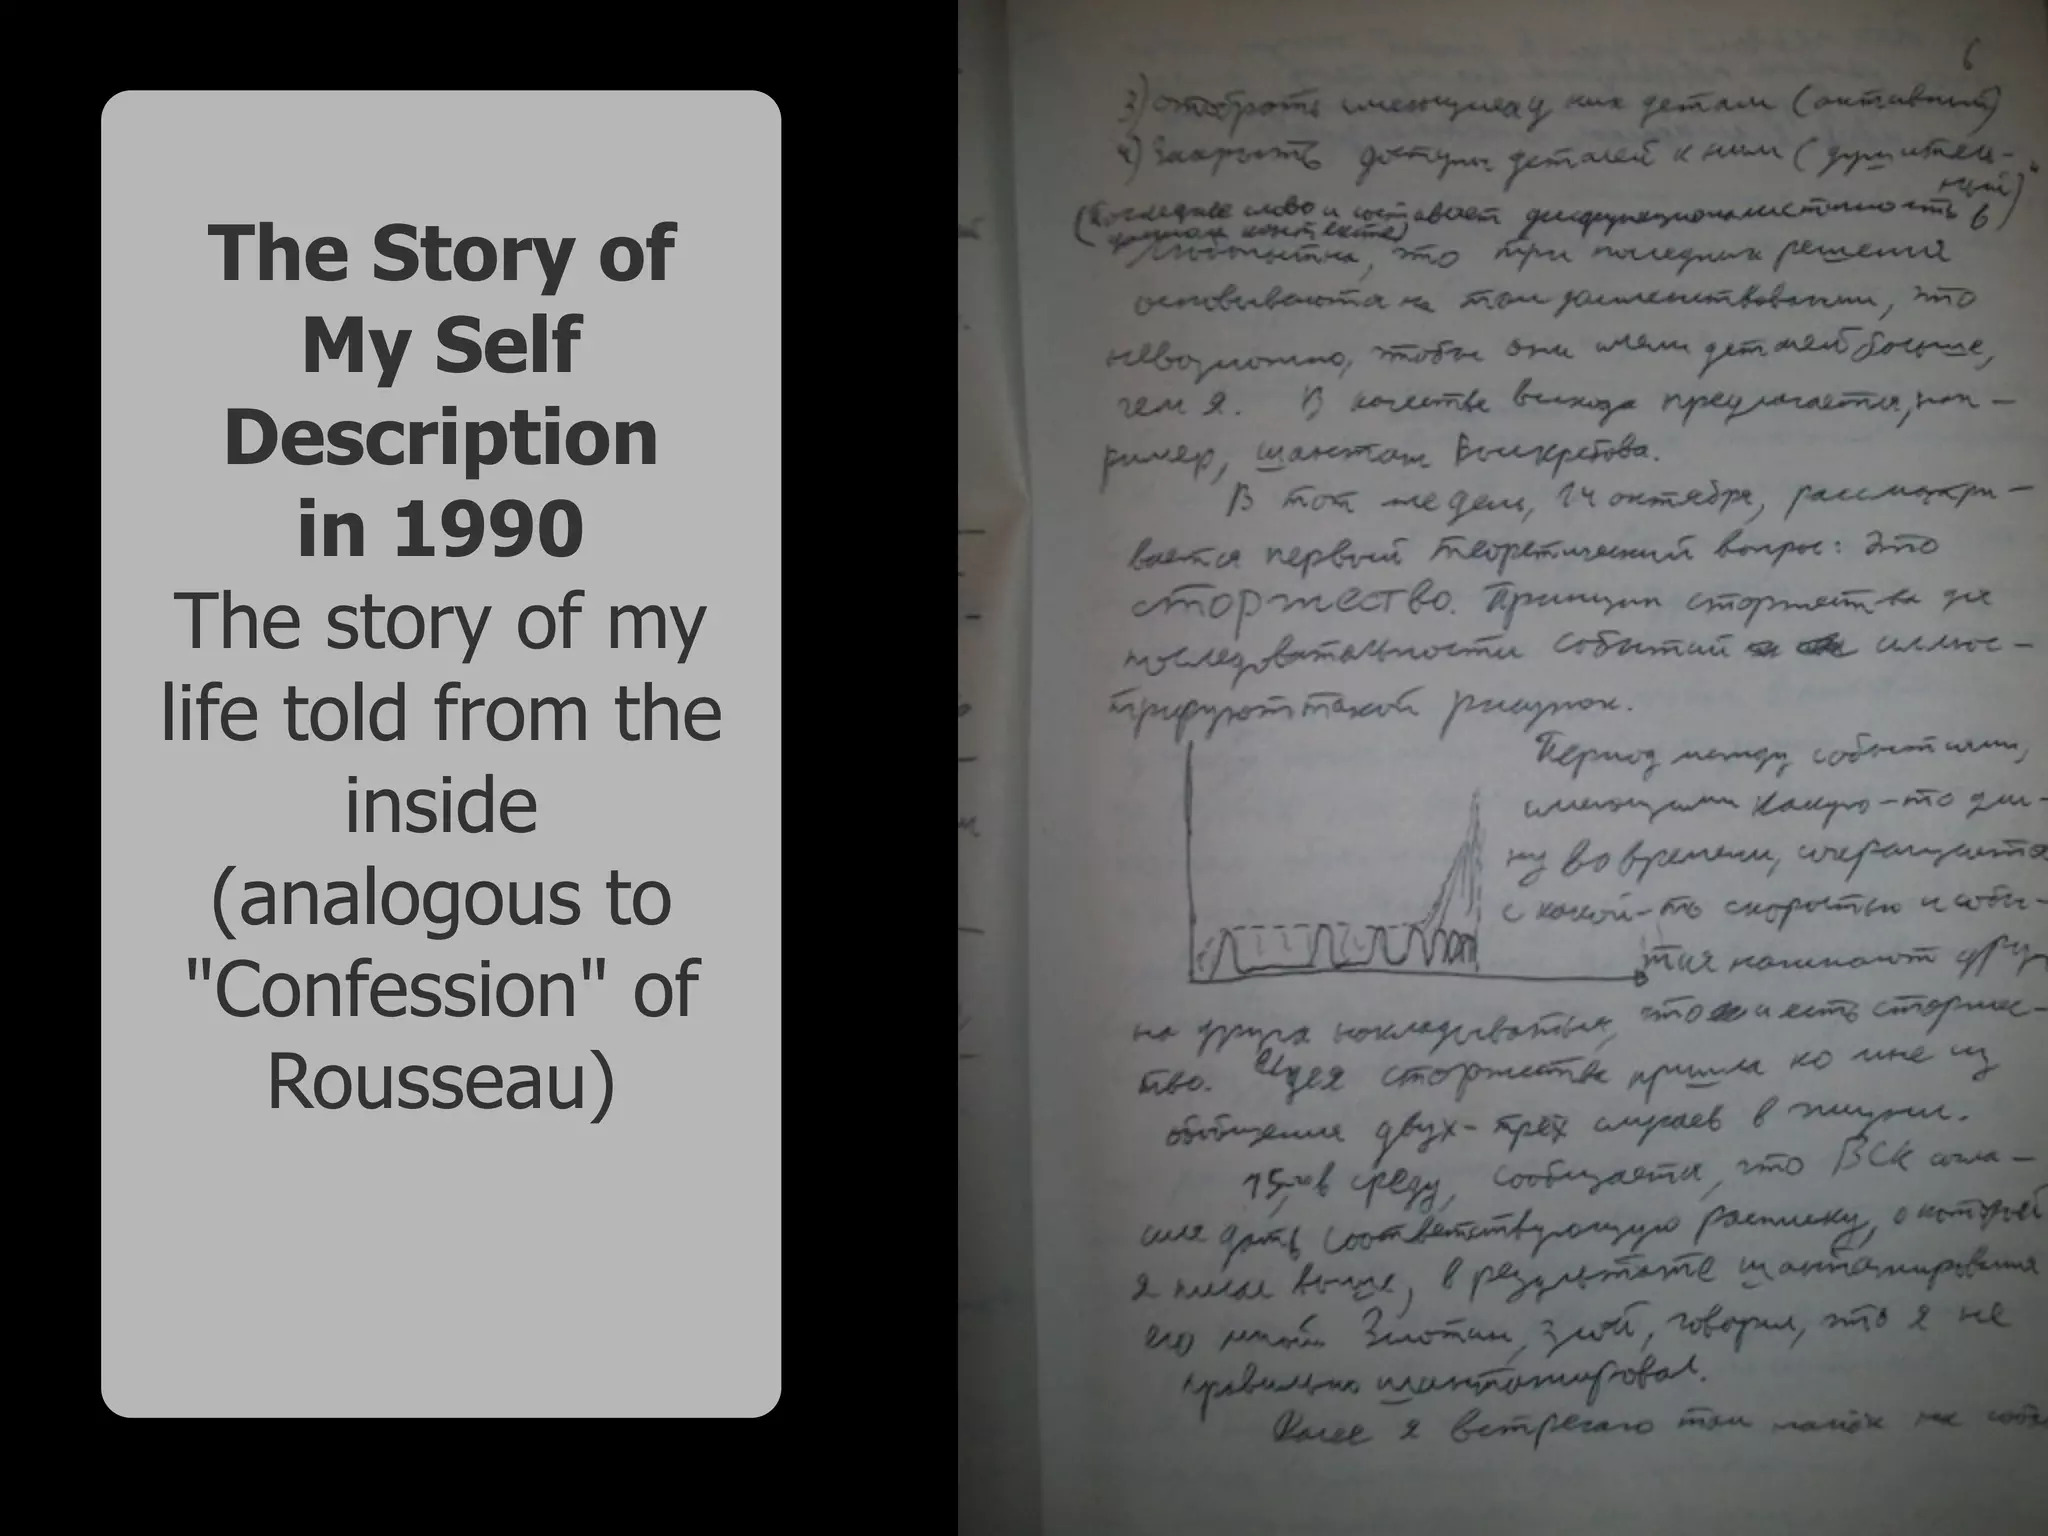 The Story of
My Self
Description
in 1990
The story of my
life told from the
inside
(analogous to
"Confession" of
Rousseau)
6
3) отобрать имеющиеся у них детали (активный)
4) Закрыть доступы деталей к ним (
(Последнее слово и составляет в
контекте)
что при последних решения
основываются на том что
невозможно, чтобы они имели деталей больше,
чем я. В качестве выхода предлагается, нап-
ример, шантаж
В тот же день, 14 октября, рассматри-
вается первый теоретический вопрос: это
сторжество. Принцип сторжества де
последовательности событий иллюс-
трируют такой рисунок.
Период между событиями,
имеющими какую-то дли-
ну во времени, сокращается
с какой-ть скоростью и собы-
тия начинают друг
на друга накладываться, что и есть сторжес-
тво. Идея сторжества пришла ко мне из
обобщения двух-трёх случаев в жизни.
15, в среду, сообщается, что ВСК согла-
сия дать соответствующую расписку, о которой
я писал выше, в результате шантажирования
его злой, говорил, что я не
правильно шантажировал.
я встречаю там